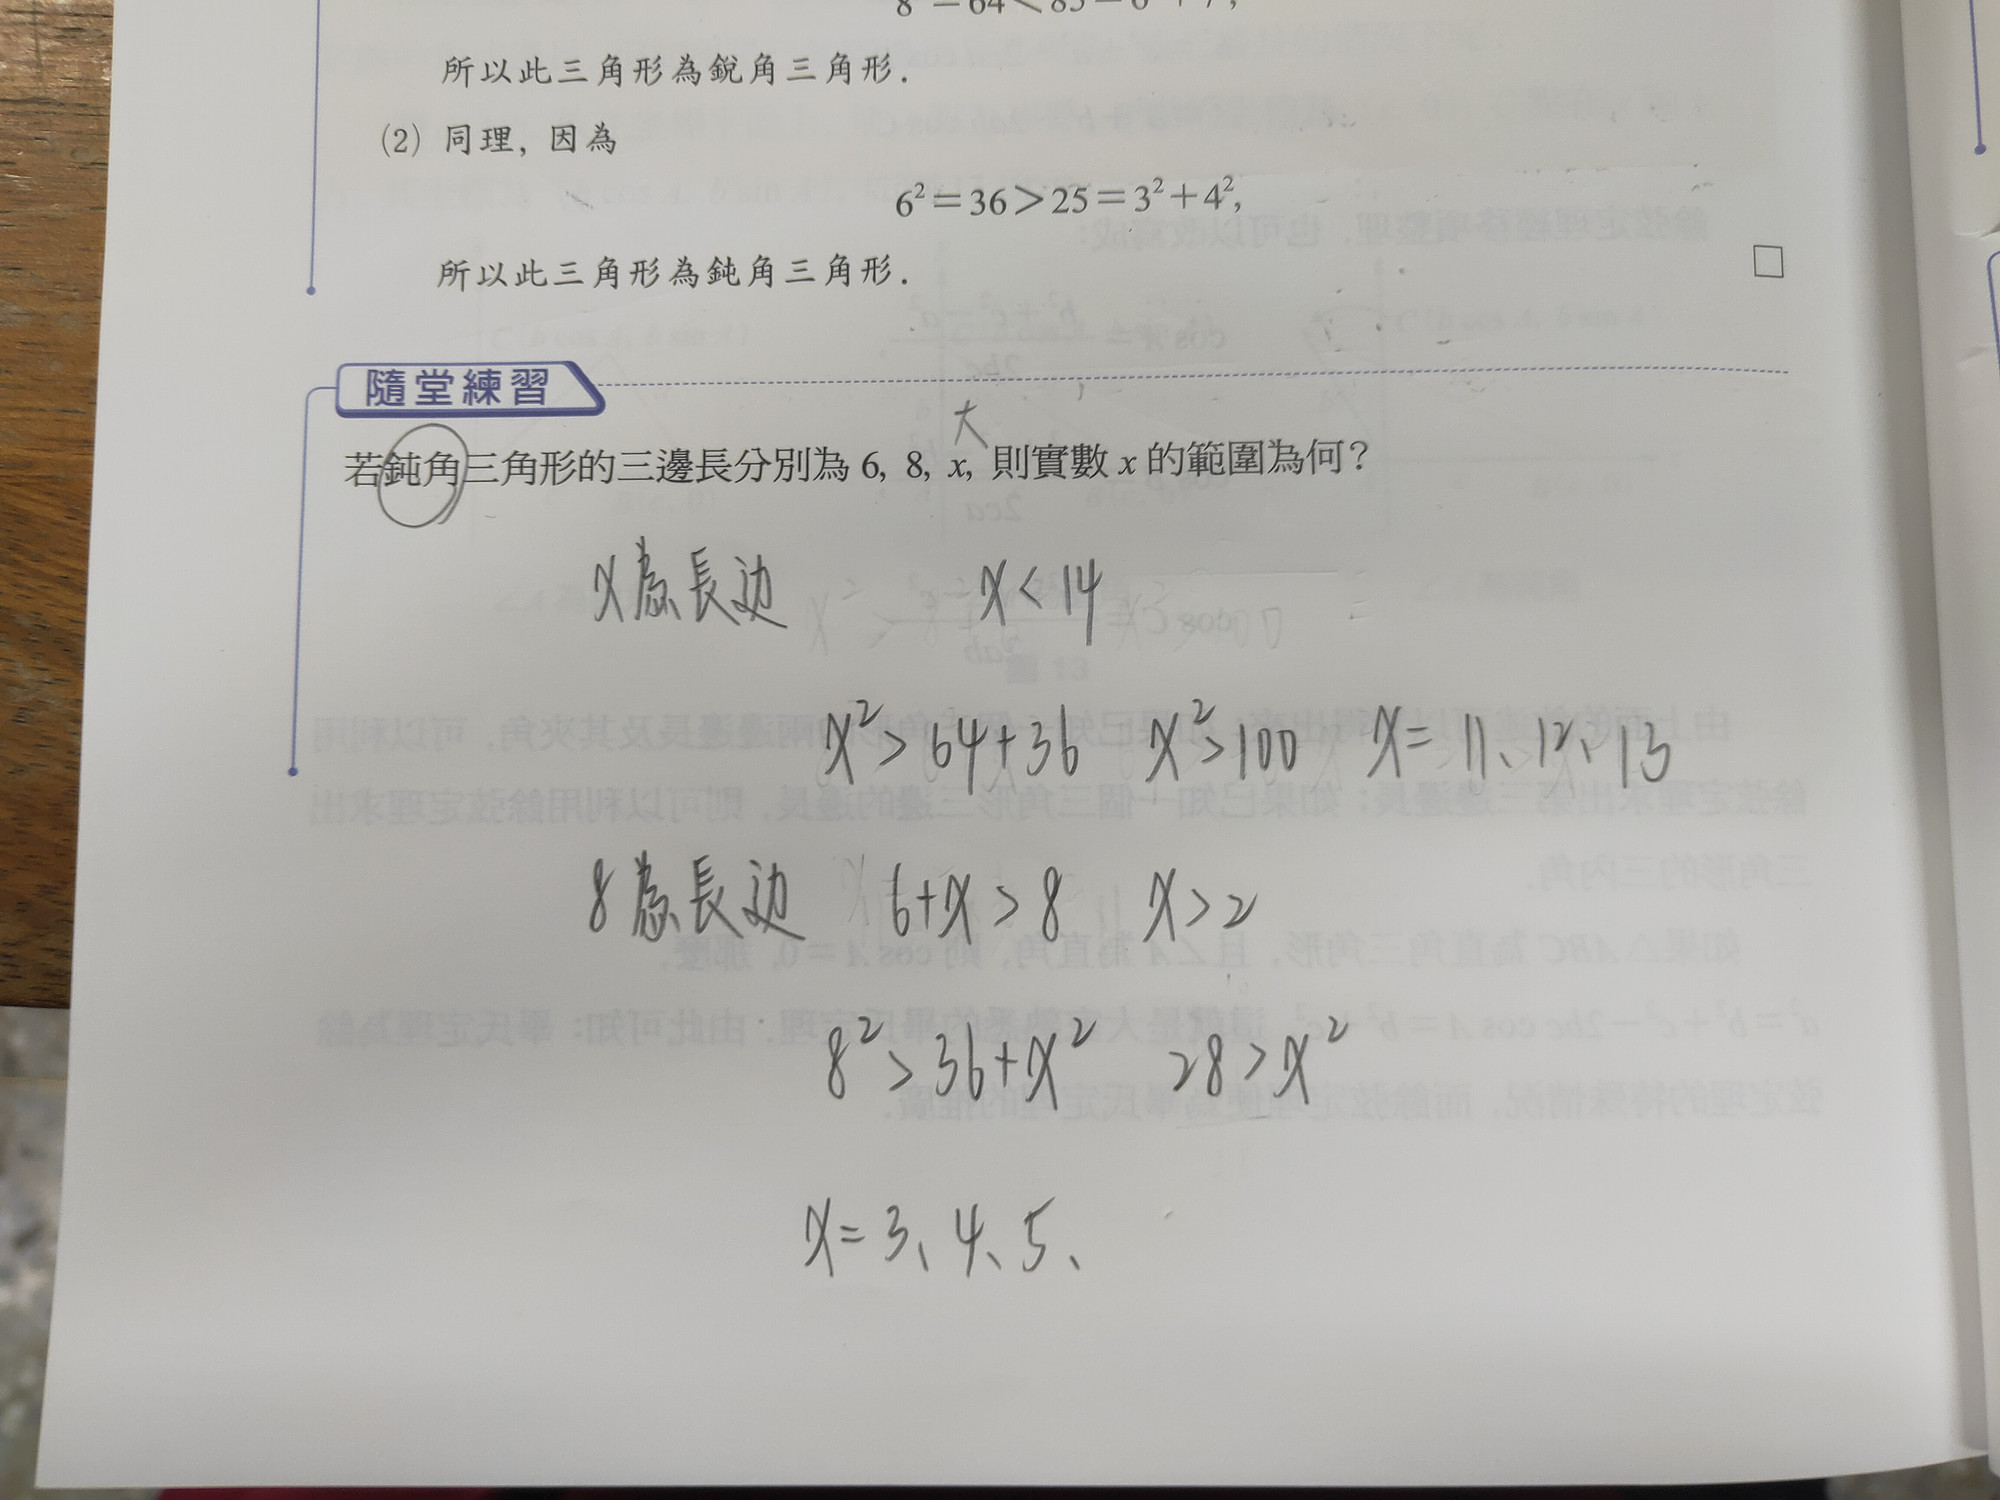 所以此三角形為銳角三角形.
(2) 同理, 因為
6²=36>25=3²+4²,
所以此三角形為鈍角三角形.
隨堂練習
大
若鈍角三角形的三邊長分別為 6, 8, x, 則實數 x 的範圍為何?
x為長边 x<14
x²>64+36 x²>100 x=11、12、13
8為長边 6+x>8 x>2
8²>36+x² 28>x²
x=3、4、5、